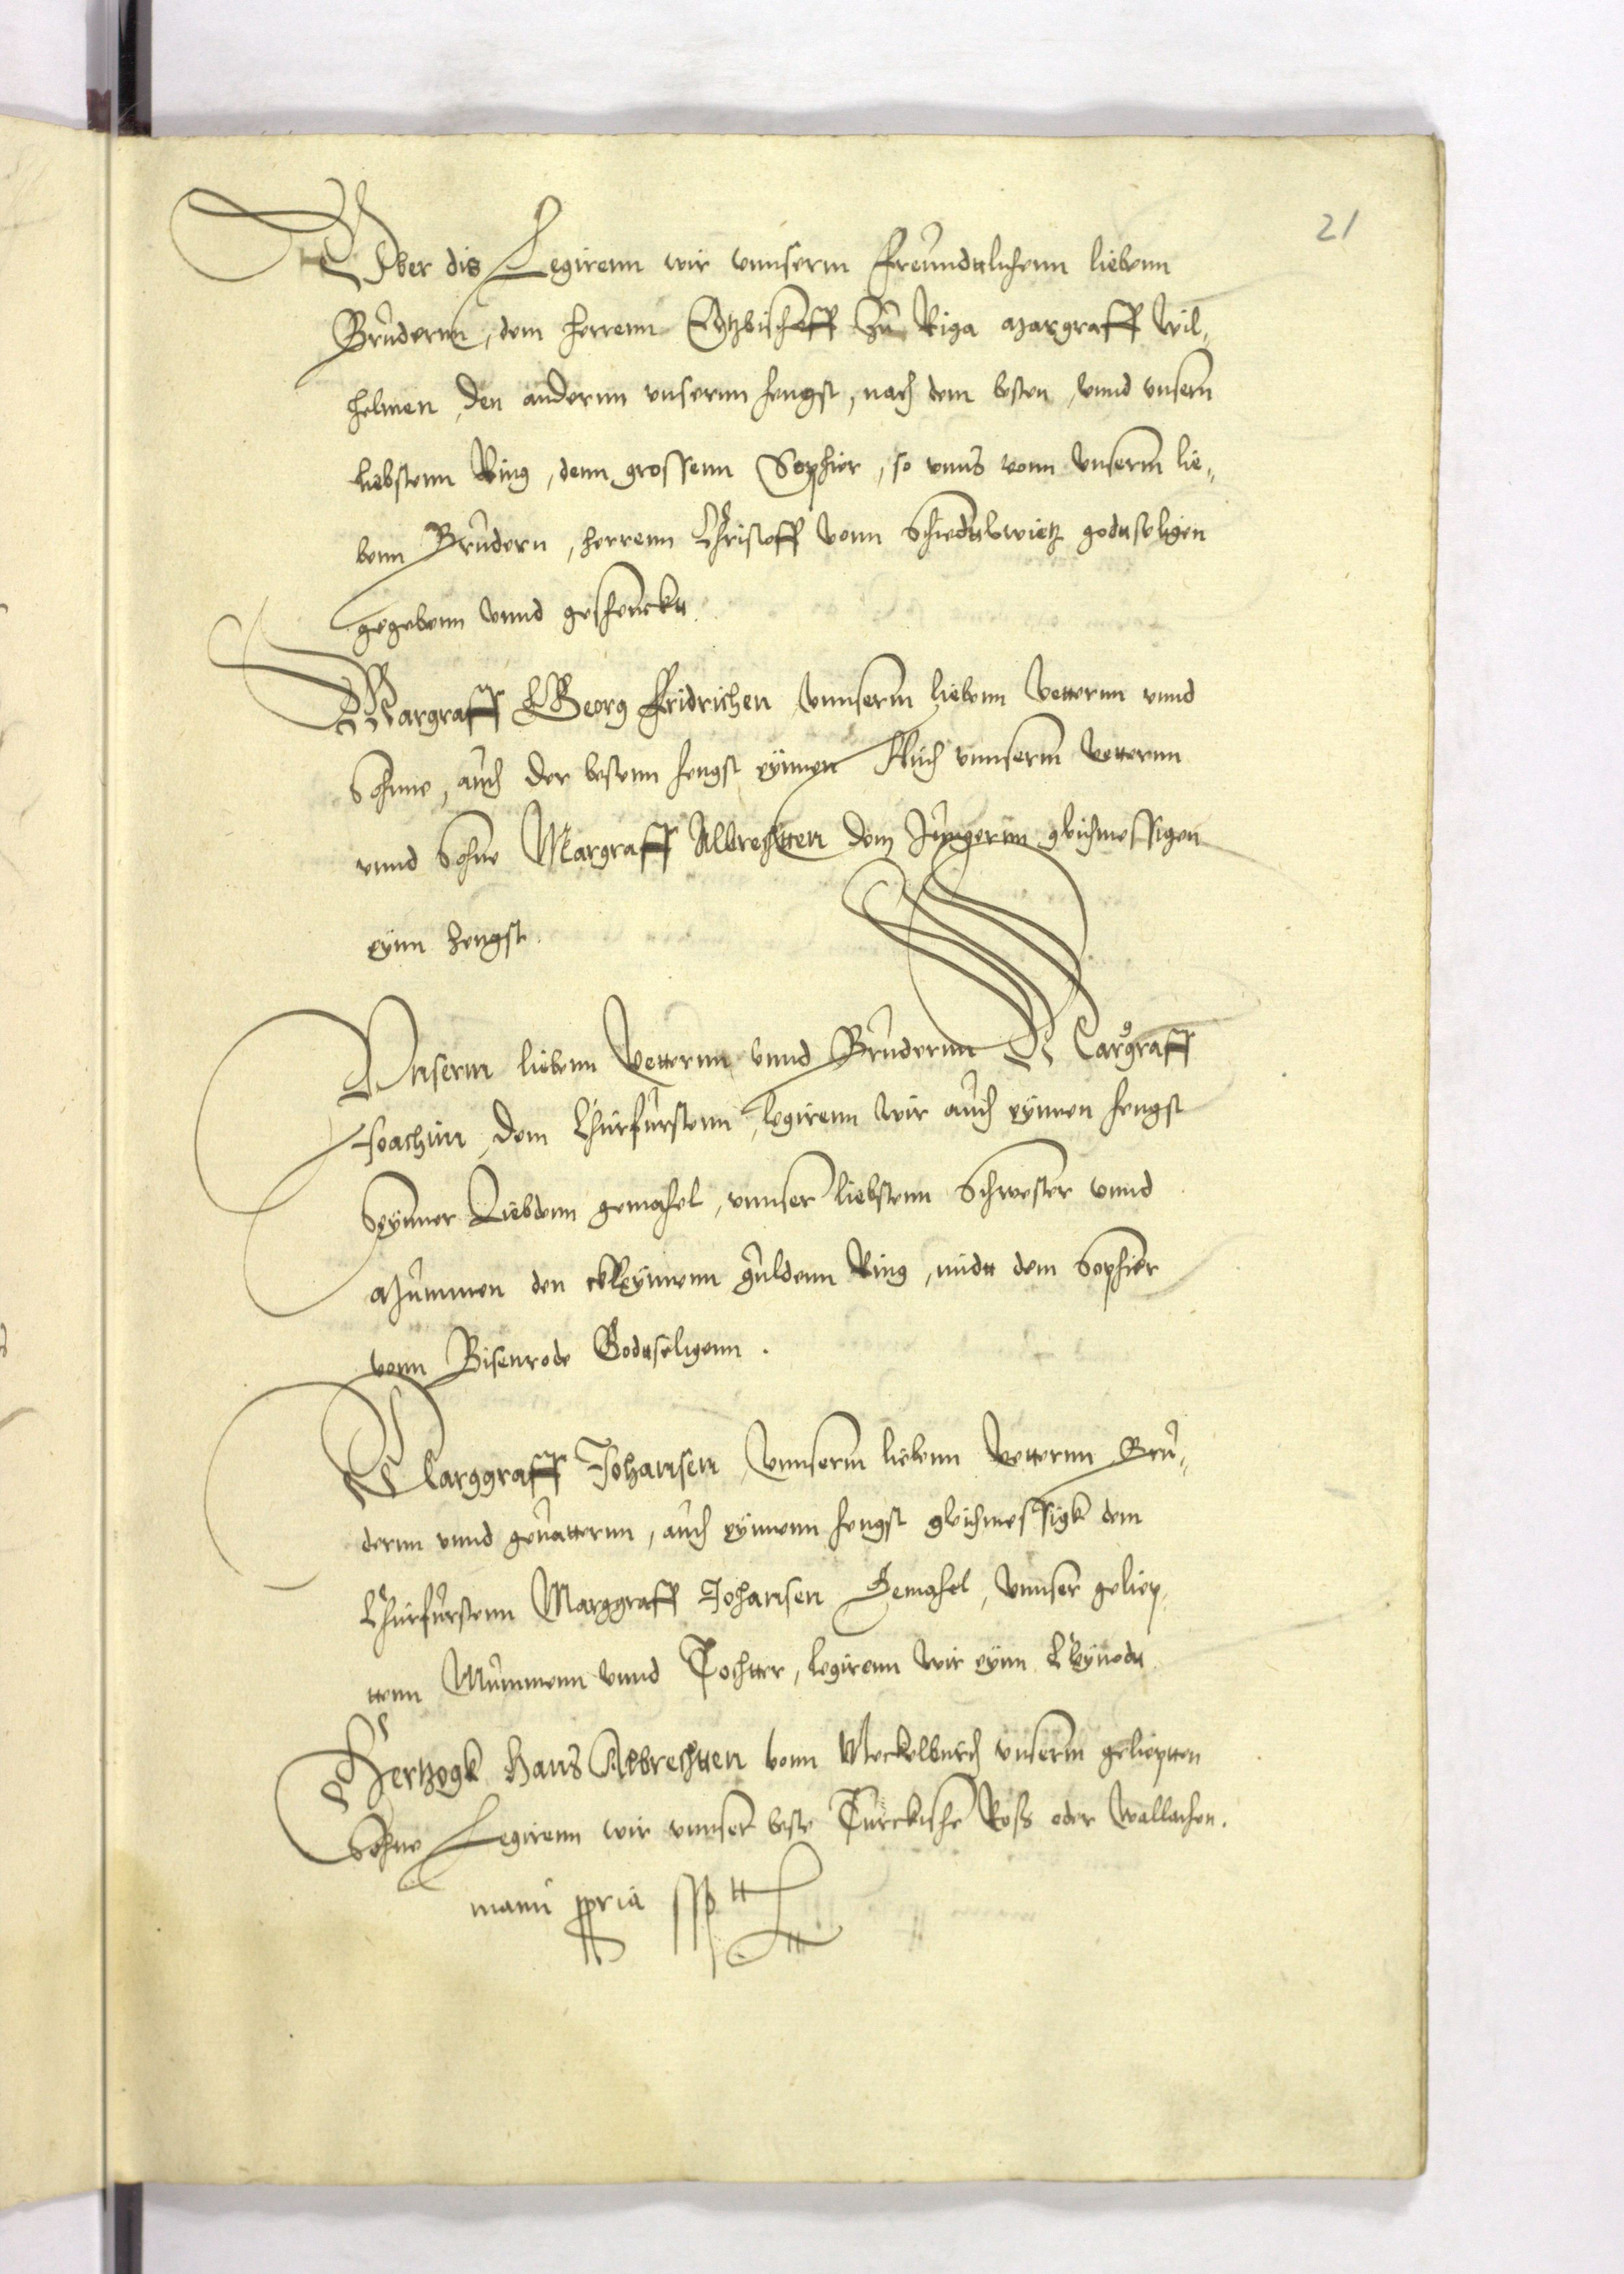 21
Vber dis Legirenn wir vnnserm Freundttlichenn liebenn
Brudernn, dem herrenn Ertzbischoff Zu Riga Margraff Wil„
helmen, den andernn vnsernn hengst, nach dem besten, vnnd vnsern
liebstenn Ring, denn grossenn Saphier, so vnns vonn vnserm lie„
benn Brudern, herrenn Christoff vonn godttseligen
gegebenn vnnd geschenckt.
Margraff Georg Fridrichen vnnserm liebenn Vetternn vnnd
Sohnne, auch der bestenn hengst eynnen Auch vnnserm Vetternn
vnnd Sohne Margraff Albrechtten dem Jungernn gleichmessigen
eynn hengst.
Vnserm liebenn Vetternn vnnd Brudernn Margraff
Joachim, dem Churfurstenn, legirenn wir auch eynnen hengst
Seynner Liebdenn gemahel, vnnser liebstenn Schwester vnnd
Muhmmen den kleynnenn guldenn Ring, midtt dem Saphier
vonn Bisenrode Godttseligenn.
Marggraff Johansen vnnserm liebenn Vetternn Bru„
dernn vnnd geuatternn, auch eynnenn hengst gleichmessigk dem
Churfurstenn Marggraff Johansen Gemahel, vnnser geliep„
tenn Muhmmenn vnnd Tochtter, legirenn wir eynn kleynodtt
Hertzogk Hans Albrechtten vonn Meckelburch vnserm geliepten
Sohne Legirenn wir vnnser beste Turckische Ross oder Wallachen.
manu ppria sspt